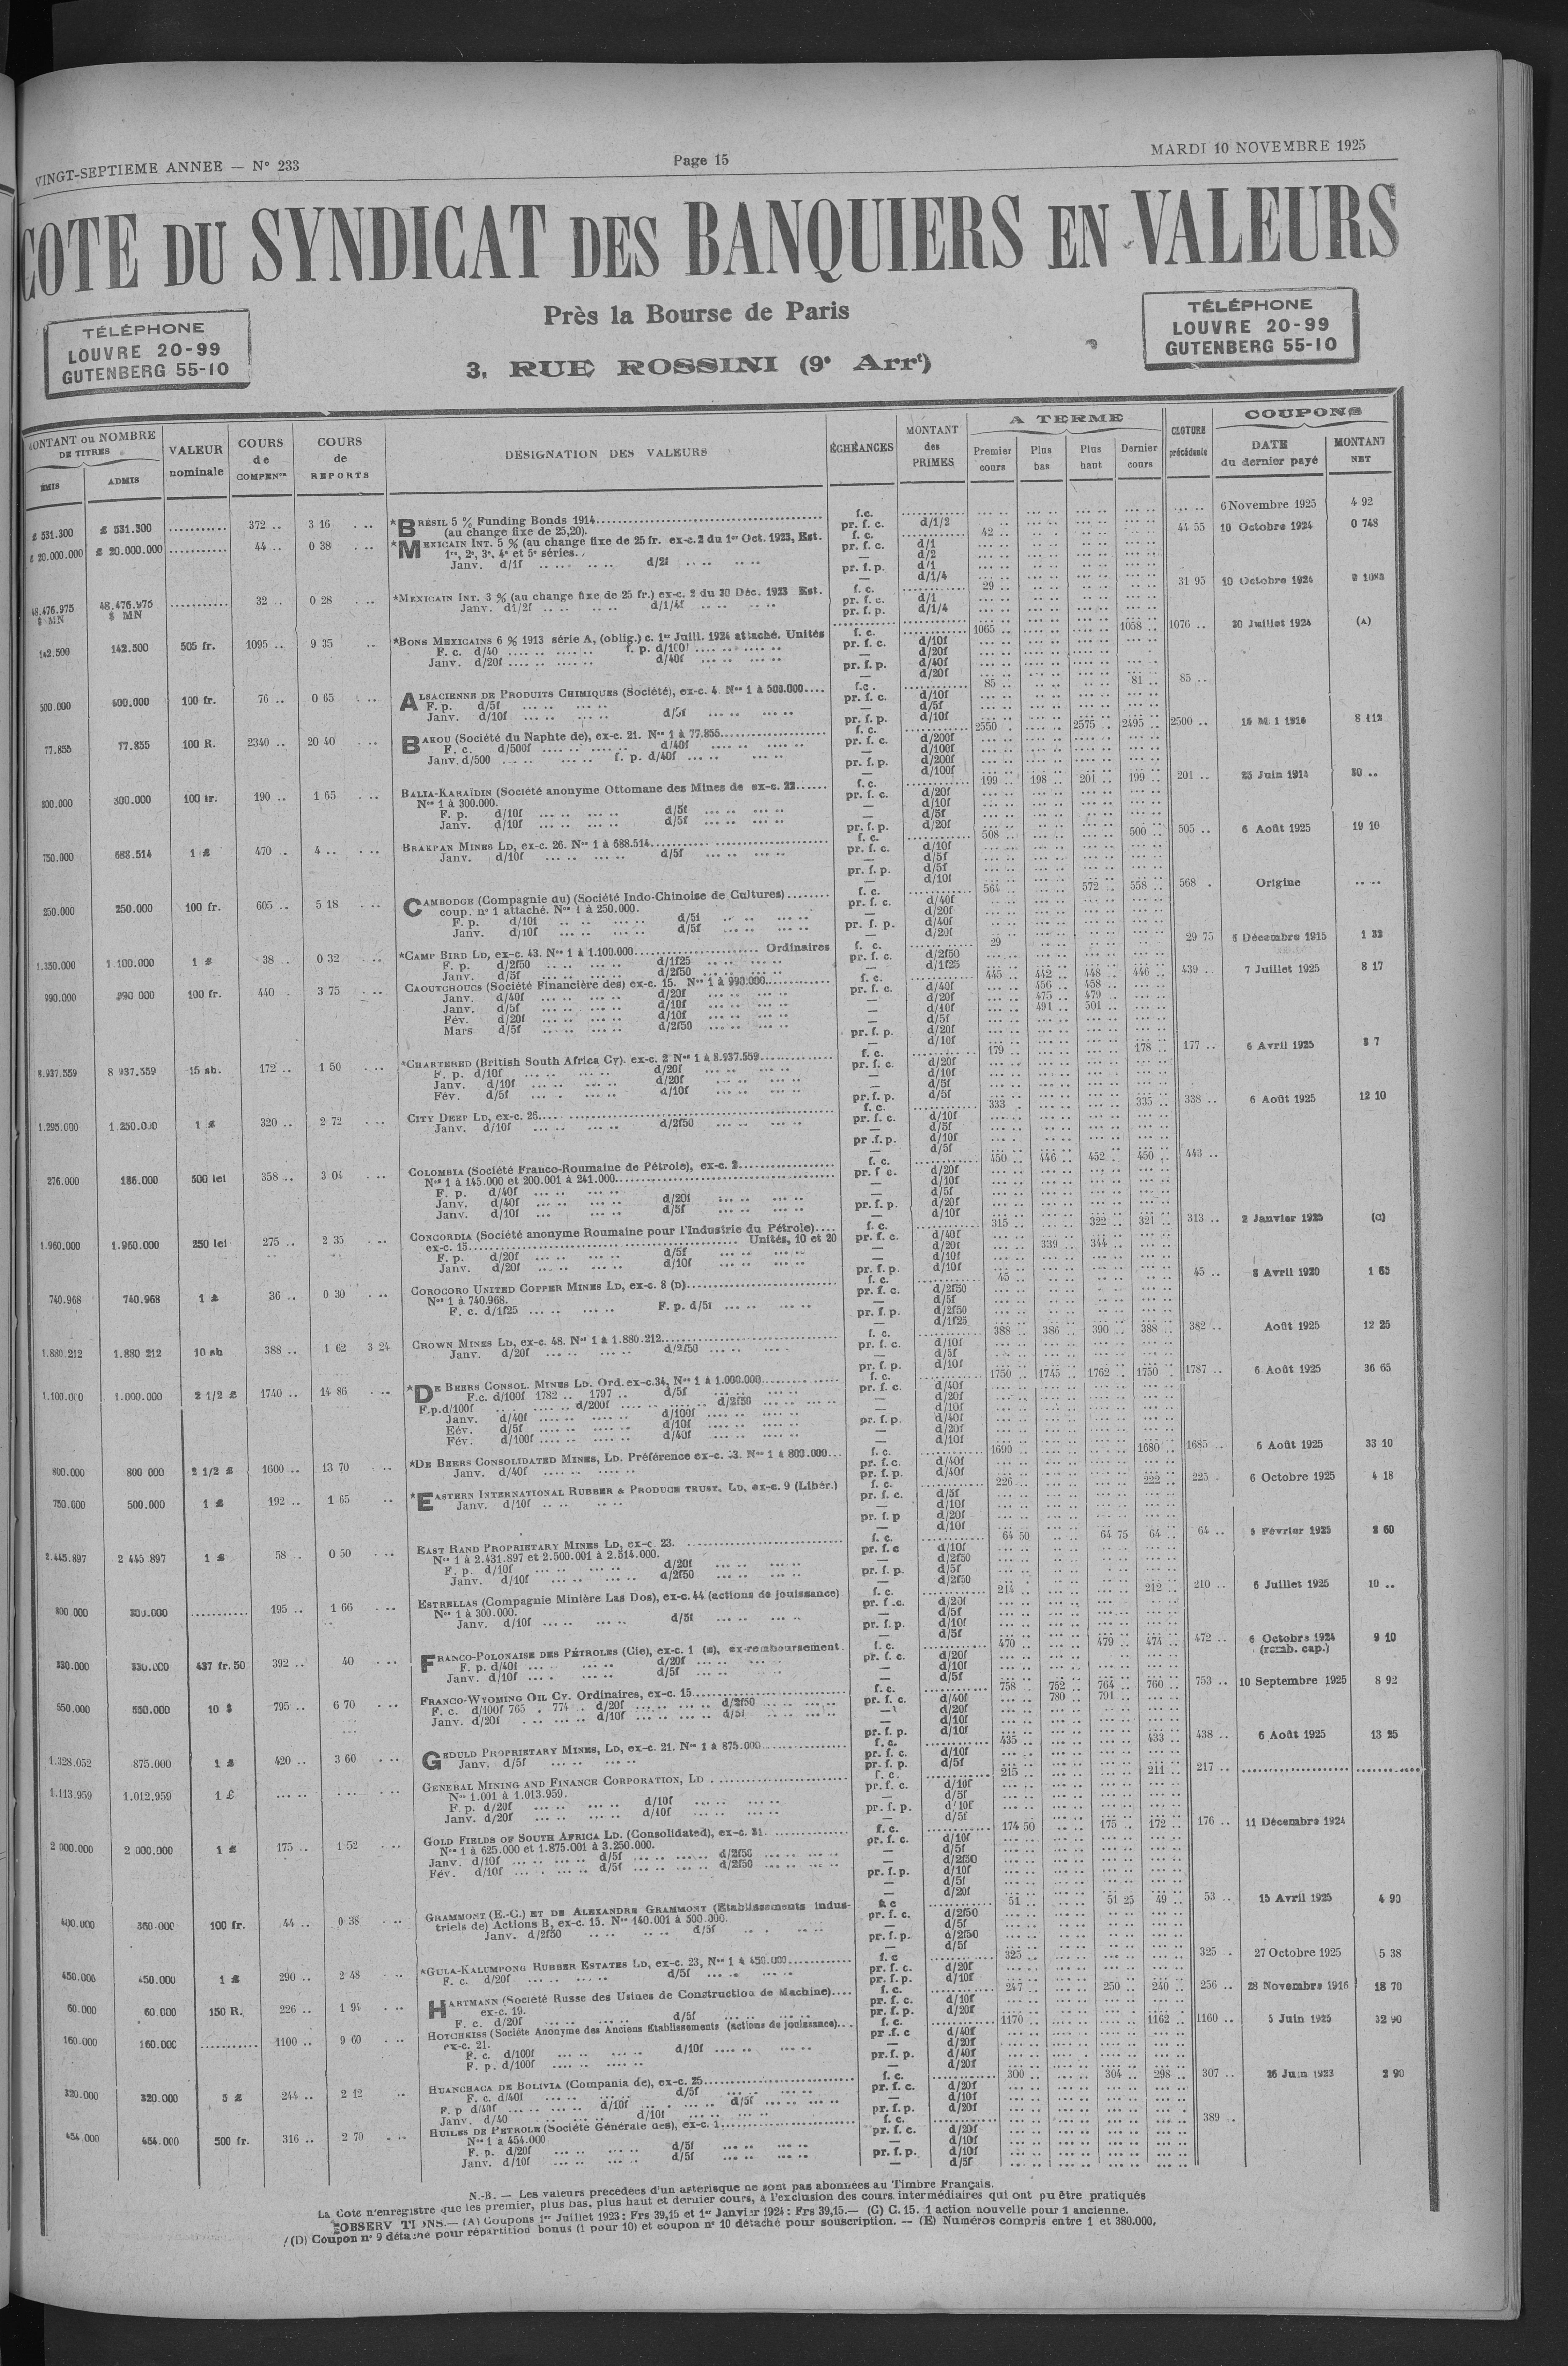 VINGT-SEPTIEME ANNEE — N° 233
Page 15
MARDI 10 NOVEMBRE 1925
COTE DU SYNDICAT DES BANQUIERS EN VALEURS
Près la Bourse de Paris
3, RUE ROSSINI (9e Arrt)
TÉLÉPHONE
LOUVRE 20-99
GUTENBERG 55-10
TÉLÉPHONE
LOUVRE 20-99
GUTENBERG 55-10
MONTANT ou NOMBRE DE TITRES
ÉMIS ADMIS
VALEUR nominale
COURS de COMPENon
COURS de REPORTS
DÉSIGNATION DES VALEURS
ÉCHÉANCES
MONTANT des PRIMES
A TERME
Premier cours Plus bas Plus haut Dernier cours
CLOTURE précédente
COUPONS
DATE du dernier payé
MONTANT NET
£ 531.300 £ 531.300 372 .. 3 16 *BRÉSIL 5 % Funding Bonds 1914 f.c. 6 Novembre 1925 4 92
(au change fixe de 25,20). pr. f. c. d/1/2
£ 20.000.000 £ 20.000.000 44 .. 0 38 *MEXICAIN INT. 5 % (au change fixe de 25 fr. ex-c.2 du 1er Oct. 1923, Est. f. c. 42 .. 44 55 10 Octobre 1924 0 748
1re, 2e, 3e, 4e et 5e séries. pr. f. c. d/1
Janv. d/1f d/2f
48.476.975 $ MN 48.476.975 $ MN 32 .. 0 28 *MEXICAIN INT. 3 % (au change fixe de 25 fr.) ex-c. 2 du 30 Déc. 1923 Est. f. c. 29 .. 31 95 10 Octobre 1924
Janv. d1/2f d/1/4f
142.500 142.500 505 fr. 1095 .. 9 35 *BONS MEXICAINS 6 % 1913 série A, (oblig.) c. 1er Juill. 1924 attaché. Unités f. c. 1065 .. 1058 .. 1076 .. 30 Juillet 1924 (A)
F. c. d/40 f. p. d/100f
Janv. d/20f d/40f
500.000 500.000 100 fr. 76 .. 0 65 ALSACIENNE DE PRODUITS CHIMIQUES (Société), ex-c. 4. Nos 1 à 500.000 f.c. 85 .. 81 .. 85 ..
F. p. d/5f
Janv. d/10f d/5f
77.855 77.855 100 R. 2340 .. 20 40 BAKOU (Société du Naphte de), ex-c. 21. Nos 1 à 77.855 f. c. 2550 . 2575 . 2495 .. 2500 .. 8 112
F. c. d/500f d/40f
Janv. d/500 f. p. d/40f
300.000 300.000 100 fr. 190 .. 1 65 BALIA-KARAÏDIN (Société anonyme Ottomane des Mines de ex-c. 22 f. c. 199 .. 198 .. 201 .. 199 .. 201 .. 25 Juin 1914 20 ..
Nos 1 à 300.000.
F. p. d/10f d/5f
Janv. d/10f d/5f
750.000 688.514 1 £ 470 .. 4 .. BRAKPAN MINES LD, ex-c. 26. Nos 1 à 688.514 f. c. 508 .. 500 .. 505 .. 6 Août 1925 19 10
Janv. d/10f d/5f
250.000 250.000 100 fr. 605 .. 5 18 CAMBODGE (Compagnie du) (Société Indo-Chinoise de Cultures) f. c. 564 .. 572 .. 558 .. 568 . Origine
coup. n° 1 attaché. Nos 1 à 250.000.
F. p. d/10f d/5f
Janv. d/10f d/5f
1.350.000 1.100.000 1 £ 38 .. 0 32 *CAMP BIRD LD, ex-c. 43. Nos 1 à 1.100.000 Ordinaires f. c. 29 29 75 5 Décembre 1915 1 32
F. p. d/2f50 d/1f25
Janv. d/5f d/2f50
990.000 990 000 100 fr. 440 . 3 75 CAOUTCHOUCS (Société Financière des) ex-c. 15. Nos 1 à 990.000 f. c. 445 .. 442 .. 448 .. 446 .. 439 .. 7 Juillet 1925 8 17
Janv. d/40f d/20f pr. f. c. d/40f 456 .. 458 ..
Janv. d/5f d/10f d/20f 475 .. 479 ..
Fév. d/20f d/10f d/10f 491 .. 501 ..
Mars d/5f d/2f50
8.937.559 8 937.559 15 sh. 172 .. 1 50 *CHARTERED (British South Africa Cy). ex-c. 2 Nos 1 à 8.937.559 f. c. 179 .. 178 .. 177 .. 6 Avril 1925 3 7
F. p. d/10f d/20f
Janv. d/10f d/20f
Fév. d/5f d/10f
1.295.000 1.250.000 1 £ 320 .. 2 72 CITY DEEP LD, ex-c. 26 f. c. 333 . 335 .. 338 .. 6 Août 1925 12 10
Janv. d/10f d/2f50
276.000 186.000 500 lei 358 .. 3 04 COLOMBIA (Société Franco-Roumaine de Pétrole), ex-c. 2 f. c. 450 .. 446 .. 452 .. 450 .. 443 ..
Nos 1 à 145.000 et 200.001 à 241.000
F. p. d/40f
Janv. d/40f d/20f
Janv. d/10f d/5f
1.960.000 1.960.000 250 lei 275 .. 2 35 CONCORDIA (Société anonyme Roumaine pour l'Industrie du Pétrole) f. c. 315 .. 322 .. 321 .. 313 .. 2 Janvier 1925
ex-c. 15 Unités, 10 et 20 d/20f 339 .. 344 ..
F. p. d/20f d/5f
Janv. d/20f d/10f
740.968 740.968 1 £ 36 .. 0 30 COROCORO UNITED COPPER MINES LD, ex-c. 8 (D) f. c. 45 .. 45 .. 8 Avril 1920 1 65
Nos 1 à 740.968.
F. c. d/1f25 F. p. d/5f
1.880.212 1.880 212 10 sh 388 .. 1 62 3 24 CROWN MINES LD, ex-c. 48. Nos 1 à 1.880.212 f. c. 388 .. 386 .. 390 .. 388 .. 382 .. Août 1925 12 25
Janv. d/20f d/2f50
1.100.000 1.000.000 2 1/2 £ 1740 .. 14 86 *DE BEERS CONSOL. MINES LD. Ord. ex-c.34, Nos 1 à 1.000.000 f. c. 1750 .. 1745 .. 1762 .. 1750 . 1787 .. 6 Août 1925 36 65
F.c. d/100f 1782 .. 1797 .. d/5f
F.p.d/100f d/200f d/2f50
Janv. d/40f d/100f
Eév. d/5f d/10f
Fév. d/100f d/40f
800.000 800 000 2 1/2 £ 1600 .. 13 70 *DE BEERS CONSOLIDATED MINES, LD. Préférence f. c. 1690 .. 1680 .. 1685 .. 6 Août 1925 33 10
Janv. d/40f
750.000 500.000 1 £ 192 .. 1 65 *EASTERN INTERNATIONAL RUBBER & PRODUCE TRUST, LD, ex-c. 9 (Libér.) f. c. 226 .. 222 .. 225 . 6 Octobre 1925 4 18
Janv. d/10f
2.445.897 2 445.897 1 £ 58 .. 0 50 EAST RAND PROPRIETARY MINES LD, ex-c 23. f. c. 64 50 64 75 64 .. 64 .. 5 Février 1925 2 60
Nos 1 à 2.431.897 et 2.500.001 à 2.514.000.
F. p. d/10f d/20f
Janv. d/10f d/2f50
300.000 300.000 195 .. 1 66 ESTRELLAS (Compagnie Minière Las Dos), ex-c. 44 (actions de jouissance) f. c. 214 .. 212 .. 210 .. 6 Juillet 1925 10 ..
Nos 1 à 300.000.
Janv. d/10f d/5f
330.000 330.000 437 fr. 50 392 .. 40 FRANCO-POLONAISE DES PÉTROLES (Cie), ex-c. 1 (E), ex-remboursement. f. c. 470 .. 479 .. 474 .. 472 .. 6 Octobre 1924 9 10
F. p. d/40f d/20f (remb. cap.)
Janv. d/10f d/5f
550.000 550.000 10 $ 795 .. 6 70 FRANCO-WYOMING OIL CY. Ordinaires, ex-c. 15 f. c. 758 .. 752 .. 764 .. 760 .. 753 .. 10 Septembre 1925 8 92
F. c. d/100f 765 . 774 . d/20f d/2f50 pr. f. c. d/40f 780 .. 791 ..
Janv. d/20f d/10f d/5f
1.328.052 875.000 1 £ 420 .. 3 60 GEDULD PROPRIETARY MINES, LD, ex-c. 21. Nos 1 à 875.000 f. c. 435 .. 433 .. 438 .. 6 Août 1925 13 25
Janv. d/5f
1.113.959 1.012.959 1 £ GENERAL MINING AND FINANCE CORPORATION, LD f. c. 215 .. 211 .. 217 ..
Nos 1.001 à 1.013.959.
F. p. d/20f d/10f
Janv. d/20f d/10f
2 000.000 2 000.000 1 £ 175 .. 1 52 GOLD FIELDS OF SOUTH AFRICA LD. (Consolidated), ex-c. 31. f. c. 174 50 175 .. 172 .. 176 .. 11 Décembre 1924
Nos 1 à 625.000 et 1.875.001 à 3.250.000.
Janv. d/10f d/5f d/2f50
Fév. d/10f d/5f d/2f50
400.000 360.000 100 fr. 44 .. 0 38 GRAMMONT (E.-C.) ET DE ALEXANDRE GRAMMONT (Etablissements indus- 51 .. 51 25 49 .. 53 .. 15 Avril 1925 4 90
triels de) Actions B, ex-c. 15. Nos 140.001 à 500.000.
Janv. d/2f50 d/5f
450.000 450.000 1 £ 290 .. 2 48 *GULA-KALUMPONG RUBBER ESTATES LD, ex-c. 23, Nos 1 à 450.000 f. c 325 .. 325 . 27 Octobre 1925 5 38
F. c. d/20f d/5f
60.000 60 000 150 R. 226 .. 1 94 HARTMANN (Société Russe des Usines de Construction de Machine) f. c. 247 .. 250 .. 240 .. 256 .. 28 Novembre 1916 18 70
ex-c. 19.
F. c. d/20f d/5f
160.000 160.000 1100 .. 9 60 HOTCHKISS (Société Anonyme des Anciens Etablissements (actions de jouissance) f. c. 1170 .. 1162 .. 1160 .. 5 Juin 1925 32 90
ex-c. 21.
F. c. d/100f d/10f
F. p. d/100f
320.000 320.000 5 £ 244 .. 2 12 HUANCHACA DE BOLIVIA (Compania de), ex-c. 25 f. c. 300 .. 304 .. 298 .. 307 .. 26 Juin 1923 2 90
F. c. d/40f d/5f
F. p d/40f d/10f d/5f
Janv. d/40 d/10f
454.000 454.000 500 fr. 316 .. 2 70 HUILES DE PETROLE (Société Générale des), ex-c. 1 f. c. 389 ..
Nos 1 à 454.000
F. p. d/20f d/5f
Janv. d/10f d/5f
N.-B. — Les valeurs précédées d'un astérisque ne sont pas abonnées au Timbre Français.
La Cote n'enregistre que les premier, plus bas, plus haut et dernier cours, à l'exclusion des cours intermédiaires qui ont pu être pratiqués
OBSERV TIONS.— (A) Coupons 1er Juillet 1923 : Frs 39,15 et 1er Janvier 1924 : Frs 39,15.— (C) C. 15. 1 action nouvelle pour 1 ancienne.
(D) Coupon n° 9 détaché pour répartition bonus (1 pour 10) et coupon n° 10 détaché pour souscription. — (E) Numéros compris entre 1 et 380.000.